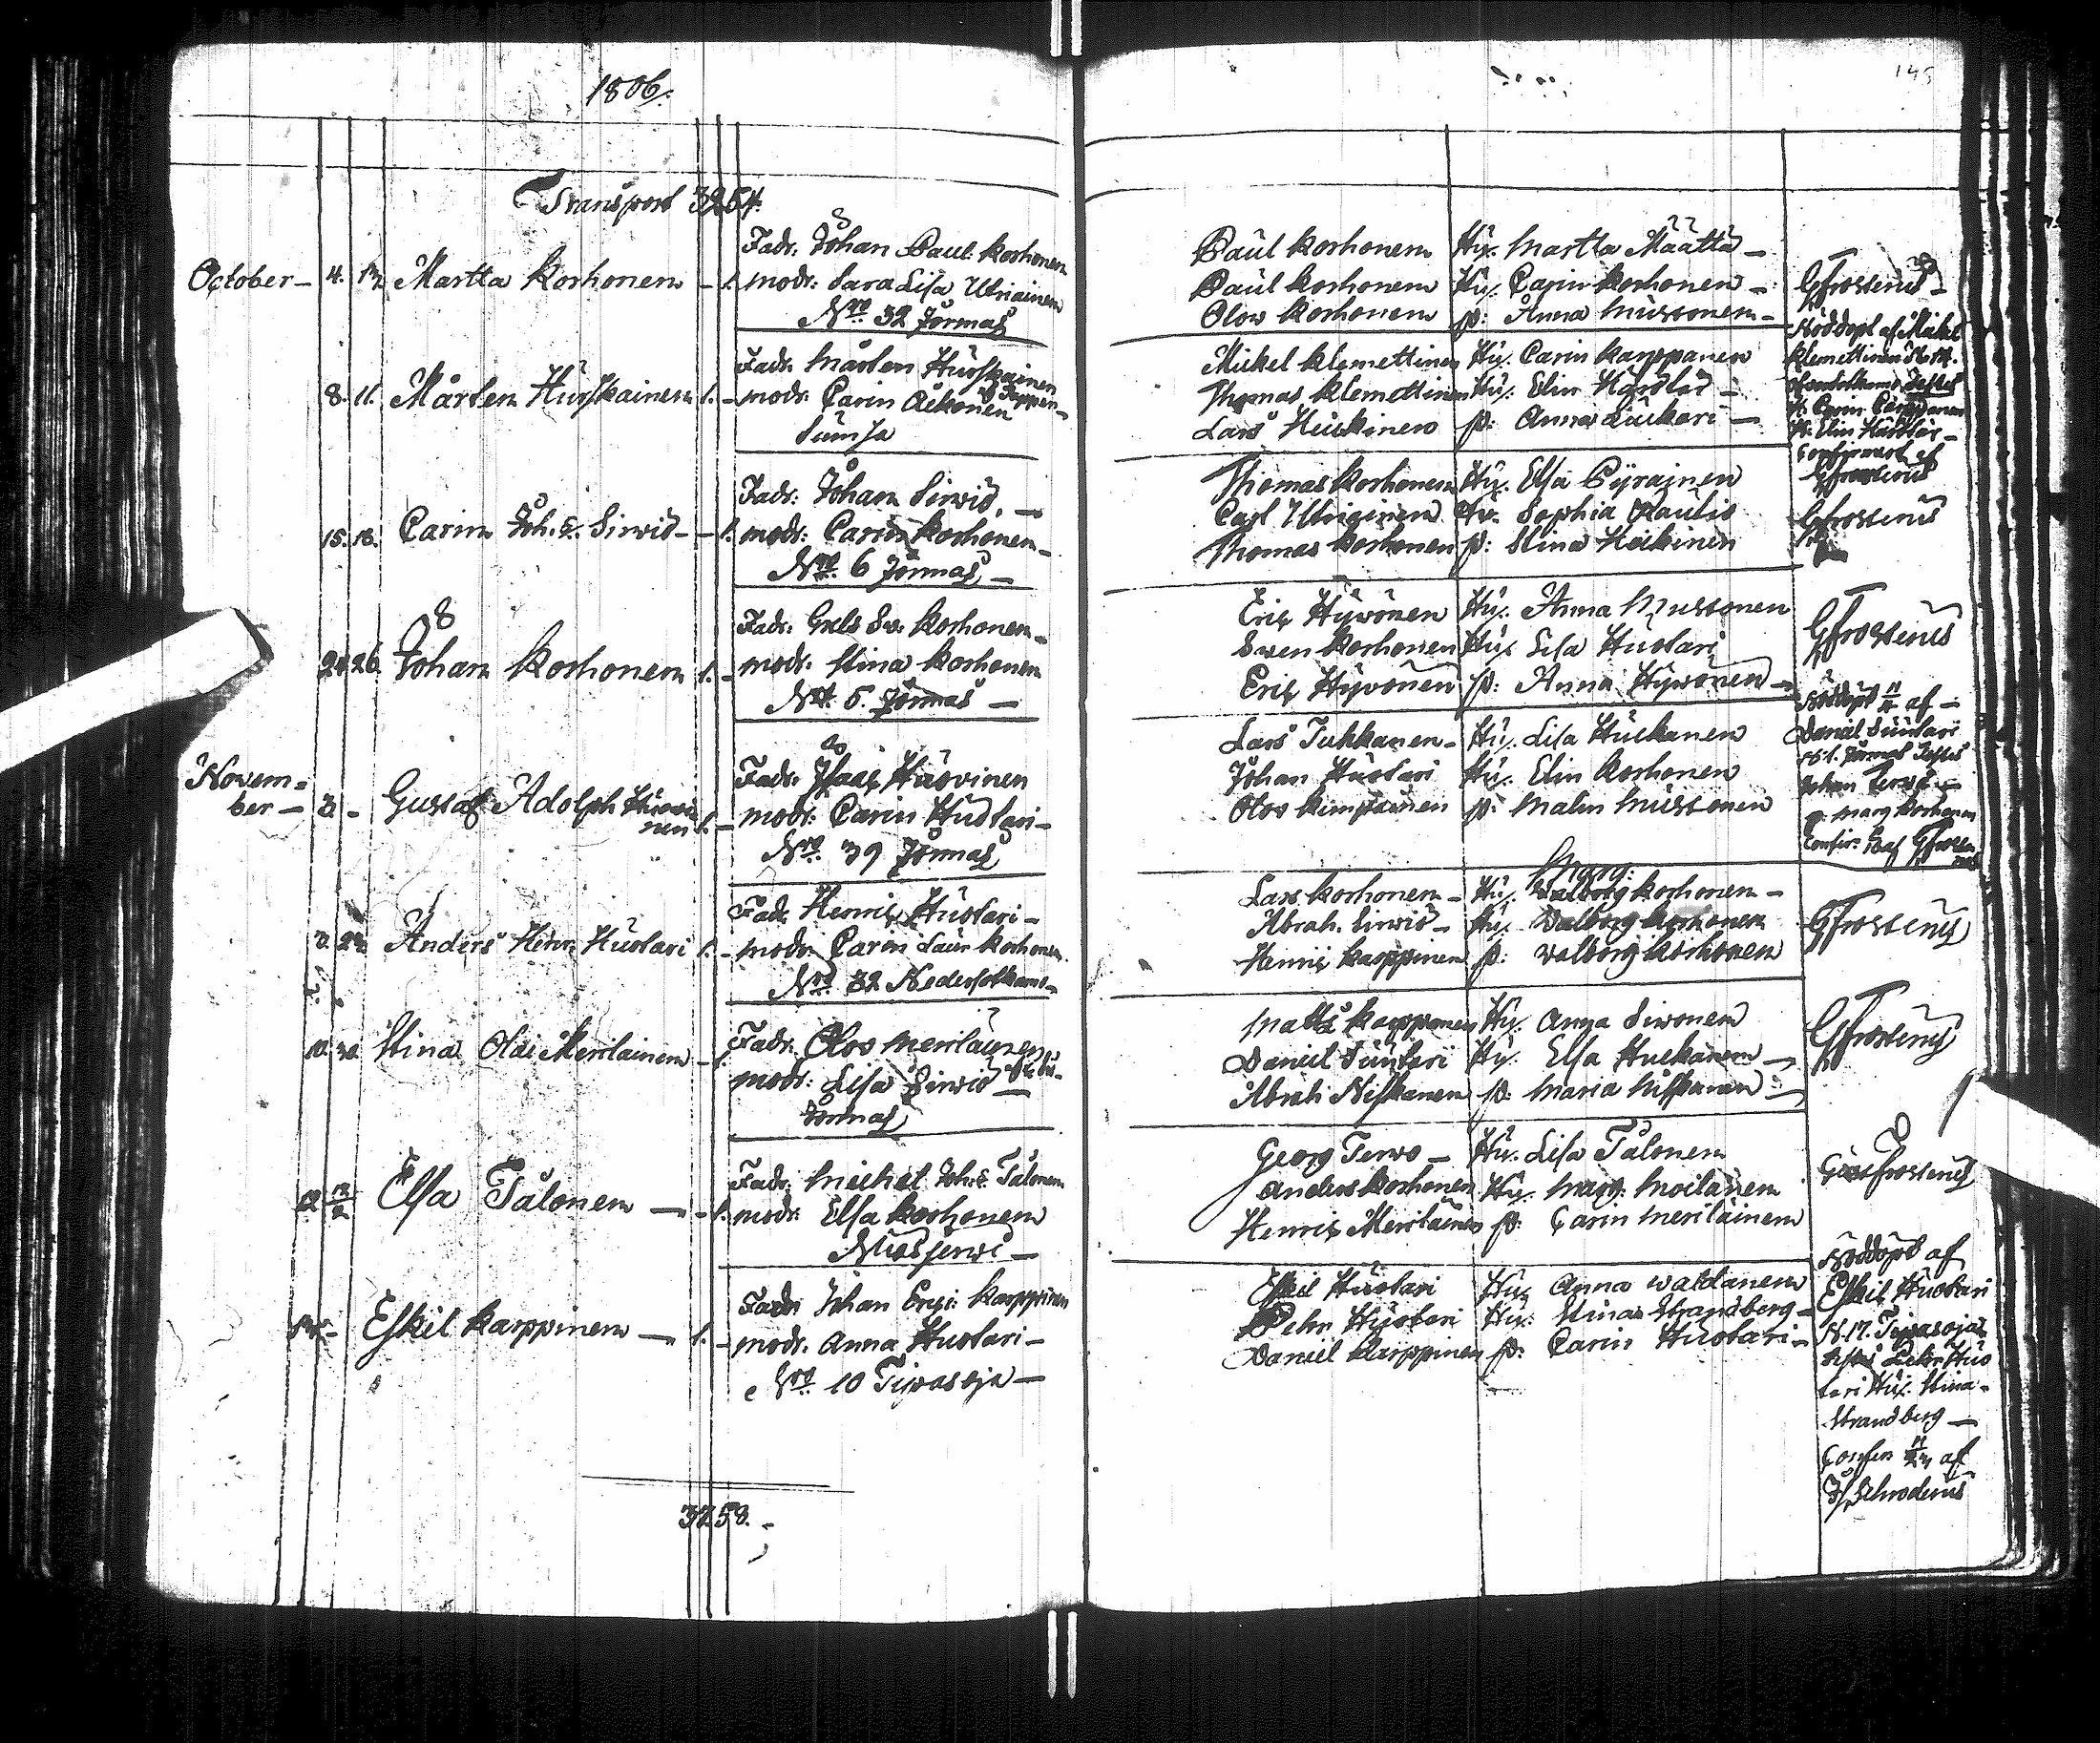 1806.
145
Transport 32 54.
October - 4. 12 Martta Korhonen - 1.
Fadr. Johan Paul. Korhonen
modr: Sara Lisa Utriainen
Nro 32 Jormas
8. 11. Mårten Hurskainen 1. -
Fadr. Mårten Hurskainen
modr. Carin Äckönen
Sumsa
15. 18. Carin Joh. d. Sirviö - - 1.
Fadr: Johan Sirviö. -
modr: Carin Korhonen -
Nro 6 Jormas -
26. Johan Korhonen 1. -
Fadr: Grels Sv: Korhonen -
modr: Stina Korhonen
Nro 5. Jormas -
Novem=
ber - 3. - Gustaf Adolph Huovi
nen 1. -
Fadr: Isaac Huovinen
modr: Carin Huotari -
Nro 39 Jormas
3. 23. Anders Henr. Huotari 1. -
Fadr Henric Huotari -
modr: Carin Laur. Korhonen
Nro 32 Nedersotkamo -
10. 30. Stina Olai Meriläinen - 1.
Fadr. Olov Meriläinen
modr: Lisa Sirviö -
Jormas
12. Elsa Tålonen - - 1.
Fadr. Michel Joh: Tålonen
modr: Elsa Korhonen
Nuasjervi -
Eskil Karppinen - 1. -
Fadr Johan Eric: Karppinen
modr. Anna Huotari -
Nro 10 Tipasoja -
32 58. -
Paul Korhonen Hu: Martta Määttä -
Paul Korhonen Hu: Carin Korhonen -
Olov Korhonen p: Anna Mustonen -
GFrosterus -
Michel Klemettinen Hu: Carin Karppanen
Thomas Klemettinen Hu: Elin
Lars Heikinen p: Anna Luukari -
Nöddöpt af Mickel
Klemettinen
Carin
Elin
Confirmert af
GFrosterus
Thomas Korhonen Hu: Elsa Pyräinen
Carl Utriainen Hu: Sophia
Thomas Korhonen p: Stina Heikinen
GFrosterus
Eric Hyvönen Hu: Anna Mustonen
Sven Korhonen Hu: Lisa Huotari
Eric Hyvönen p: Anna Hyvönen -
GFrosterus
Lars Tuhkanen - Hu: Lisa Huekanen
Johan Huotari Hu: Elin Korhonen
Olov Kimpainen p: Malin Mustonen
Nöddöpt af -
Daniel
Jormas Testes
Johan Tervo -
p: Marg Korhonen
Confir: af GFroste
rus
Marg:
Lars Korhonen - Hu: Valborg Korhonen -
Abrah. Sirviö - Hu: Valborg Korhonen
Henric Karppinen p: Valborg Korhonen
GFrosterus
Matts Karppanen Hu: Anna Sivonen
Daniel Hu: Elsa Huekanen -
Abrah Niskanen p: Maria Niskanen -
GFrosterus
Georg Tervo - Hu: Lisa Tålonen
Anders Korhonen Hu: Marg: Moilanen
Henric Meriläinen p: Carin Meriläinen
Frosterus
Eskil Huotari Hu: Anna Waldanen
Pehr Huotari Hu: Stina Strandberg -
Daniel Karppinen p: Carin Huotari -
Nöddöpt af
Eskil Huotari
N. 17. Tipasoja
Testes Pehr Huo
tari Hu: Stina -
Strandberg -
Confir af